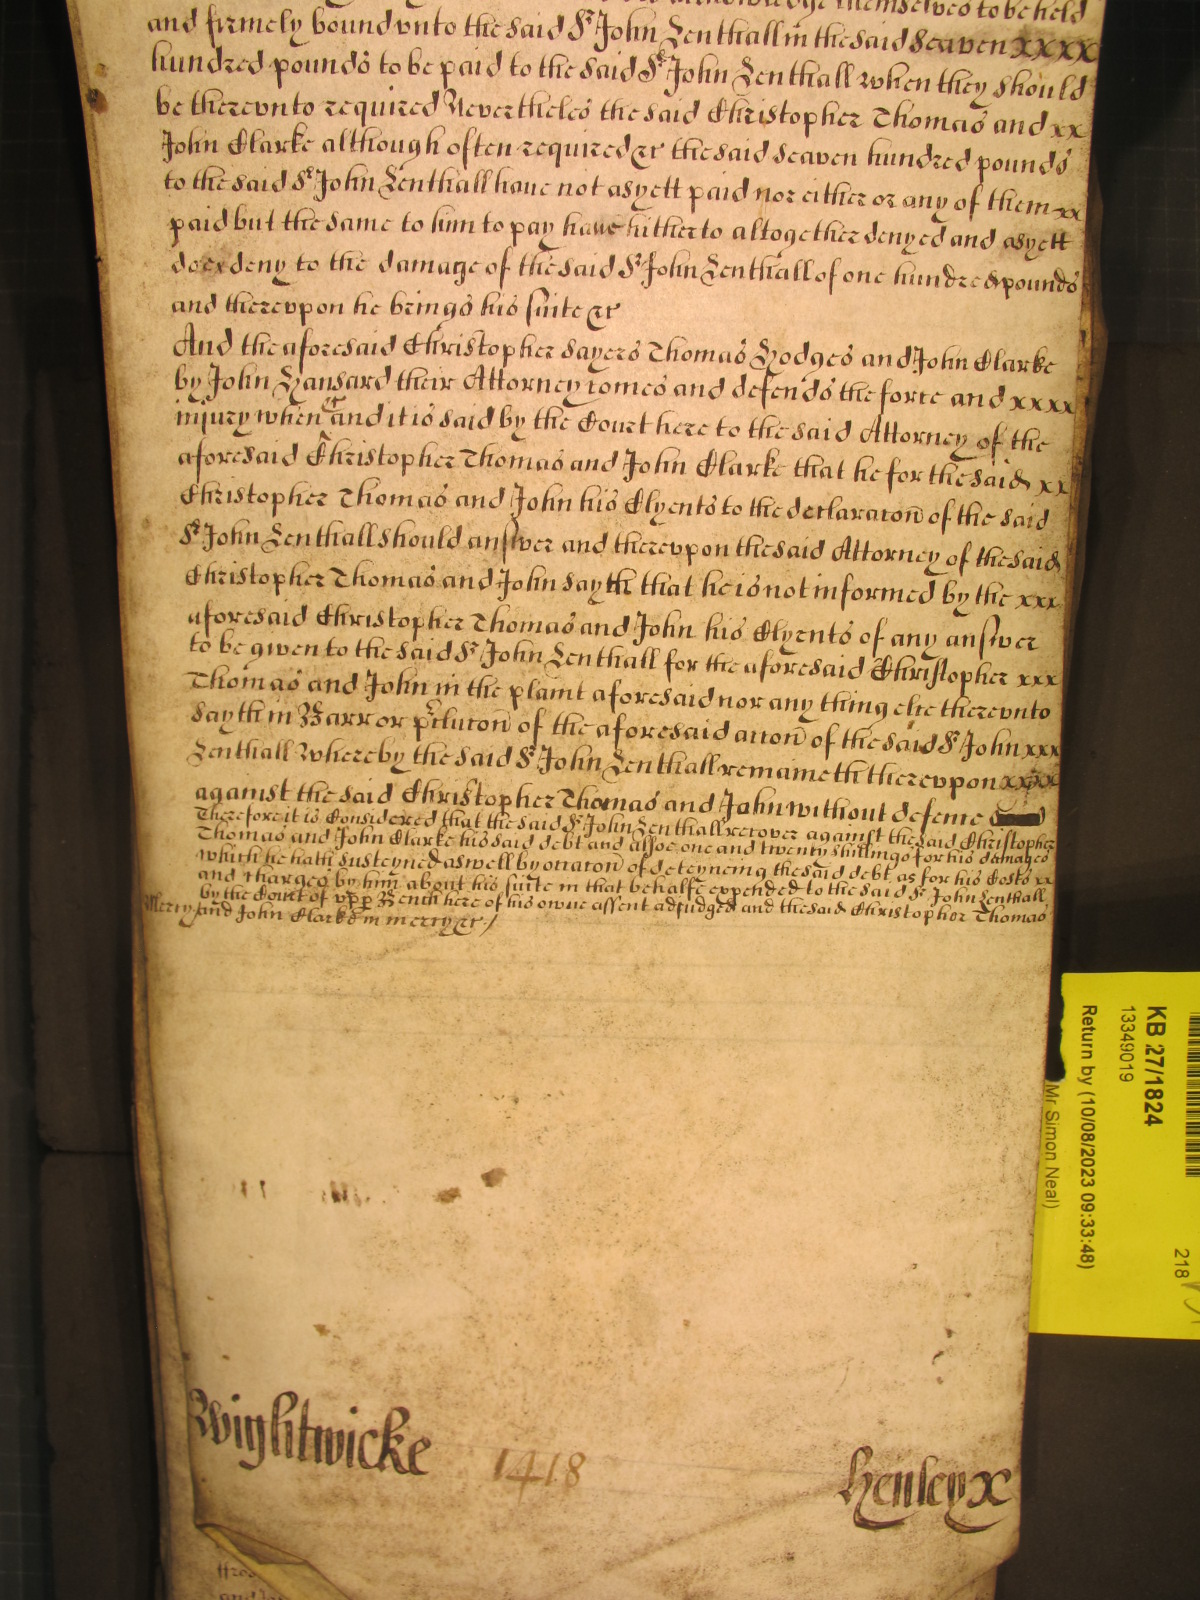 acknowledge themselves to be held
and firmely bound vnto the said Sr John Lenthall in the said seaven xxxx
hundred pounds to be paid to the said Sr John Lenthall when they should
be therevnto required Nevertheles the said Christopher Thomas and xx
John Clarke although often required &c the said seaven hundred pounds
to the said Sr John Lenthall have not as yett paid nor either or any of them xx
paid but the same to him to pay have hitherto altogether denyed and as yett
doe deny to the damage of the said Sr John Lenthall of one hundred pounds
and therevpon he brings his suite &c
And the aforesaid Christopher Sayers Thomas Hodges and John Clarke
by John Hansard their Attorney comes and defends the force and xxxx
injury when &c and it is said by the Court here to the said Attorney of the
aforesaid Christopher Thomas and John Clarke that he for the said xx
Christopher Thomas and John his Clyents to the declaracon of the said
Sr John Lenthall should answer and therevpon the said Attorney of the said
Christopher Thomas and John sayth that he is not informed by the xxx
aforesaid Christopher Thomas and John his Clyents of any answer
to be given to the said Sr John Lenthall for the aforesaid Christopher xxx
Thomas and John in the plaint aforesaid nor any thing else therevnto
sayth in Barr or preclucon of the aforesaid accon of the said Sr John xxx
Lenthall Whereby the said Sr John Lenthall remaineth therevpon xxxx
against the said Christopher Thomas and John without defence
Therefore it is Considered that the said Sr John Lenthall recover against the said Christopher
Thomas and John Clarke his said debt and alsoe one and twenty shillings for his damages
which he hath susteyned aswell by occacon of deteyneing the said debt as for his Costs xx
and charges by him about his suite in that behalfe expended to the said Sr John Lenthall
by the Court of vpp Bench here of his owne assent adjudged and the said Christopher Thomas
Mercy and John Clarke in mercy &c /
Wightwicke 1418 Henley x
KB 27/1824
13349019
Return by (10/08/2023 09:33:48)
Mr Simon Neal)
218